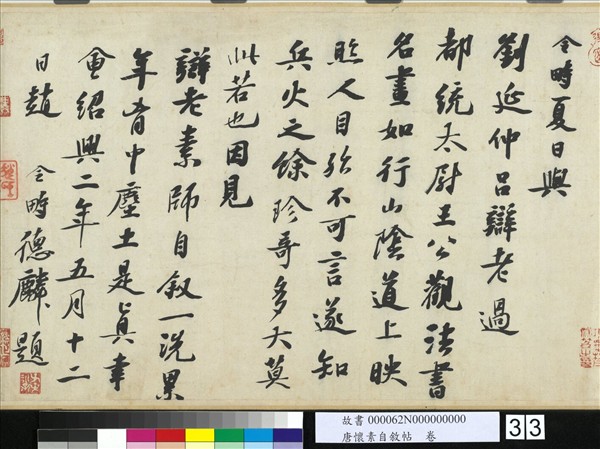 令時夏日與
劉延仲呂辯老過
都統太尉王公觀法書
名畫如行山陰道上映
照人目殆不可言遂知
兵火之餘珍哥多大莫
此若也因見
辯老素師自叙一洗累
年胷中塵土是真幸
會紹興二年五月十二
日趙 令時德麟題
故書 000062N000000000
唐懷素自敘帖 卷
33